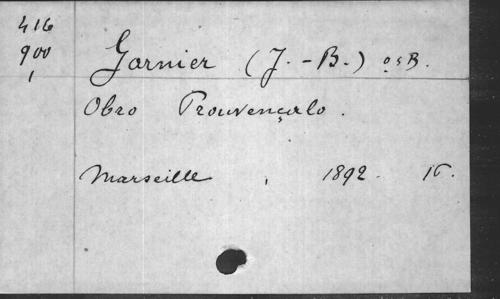 416
900
1
Garnier (J.-B.) OSB.
Obro Prouvençalo.
Marseille, 1892. 16.